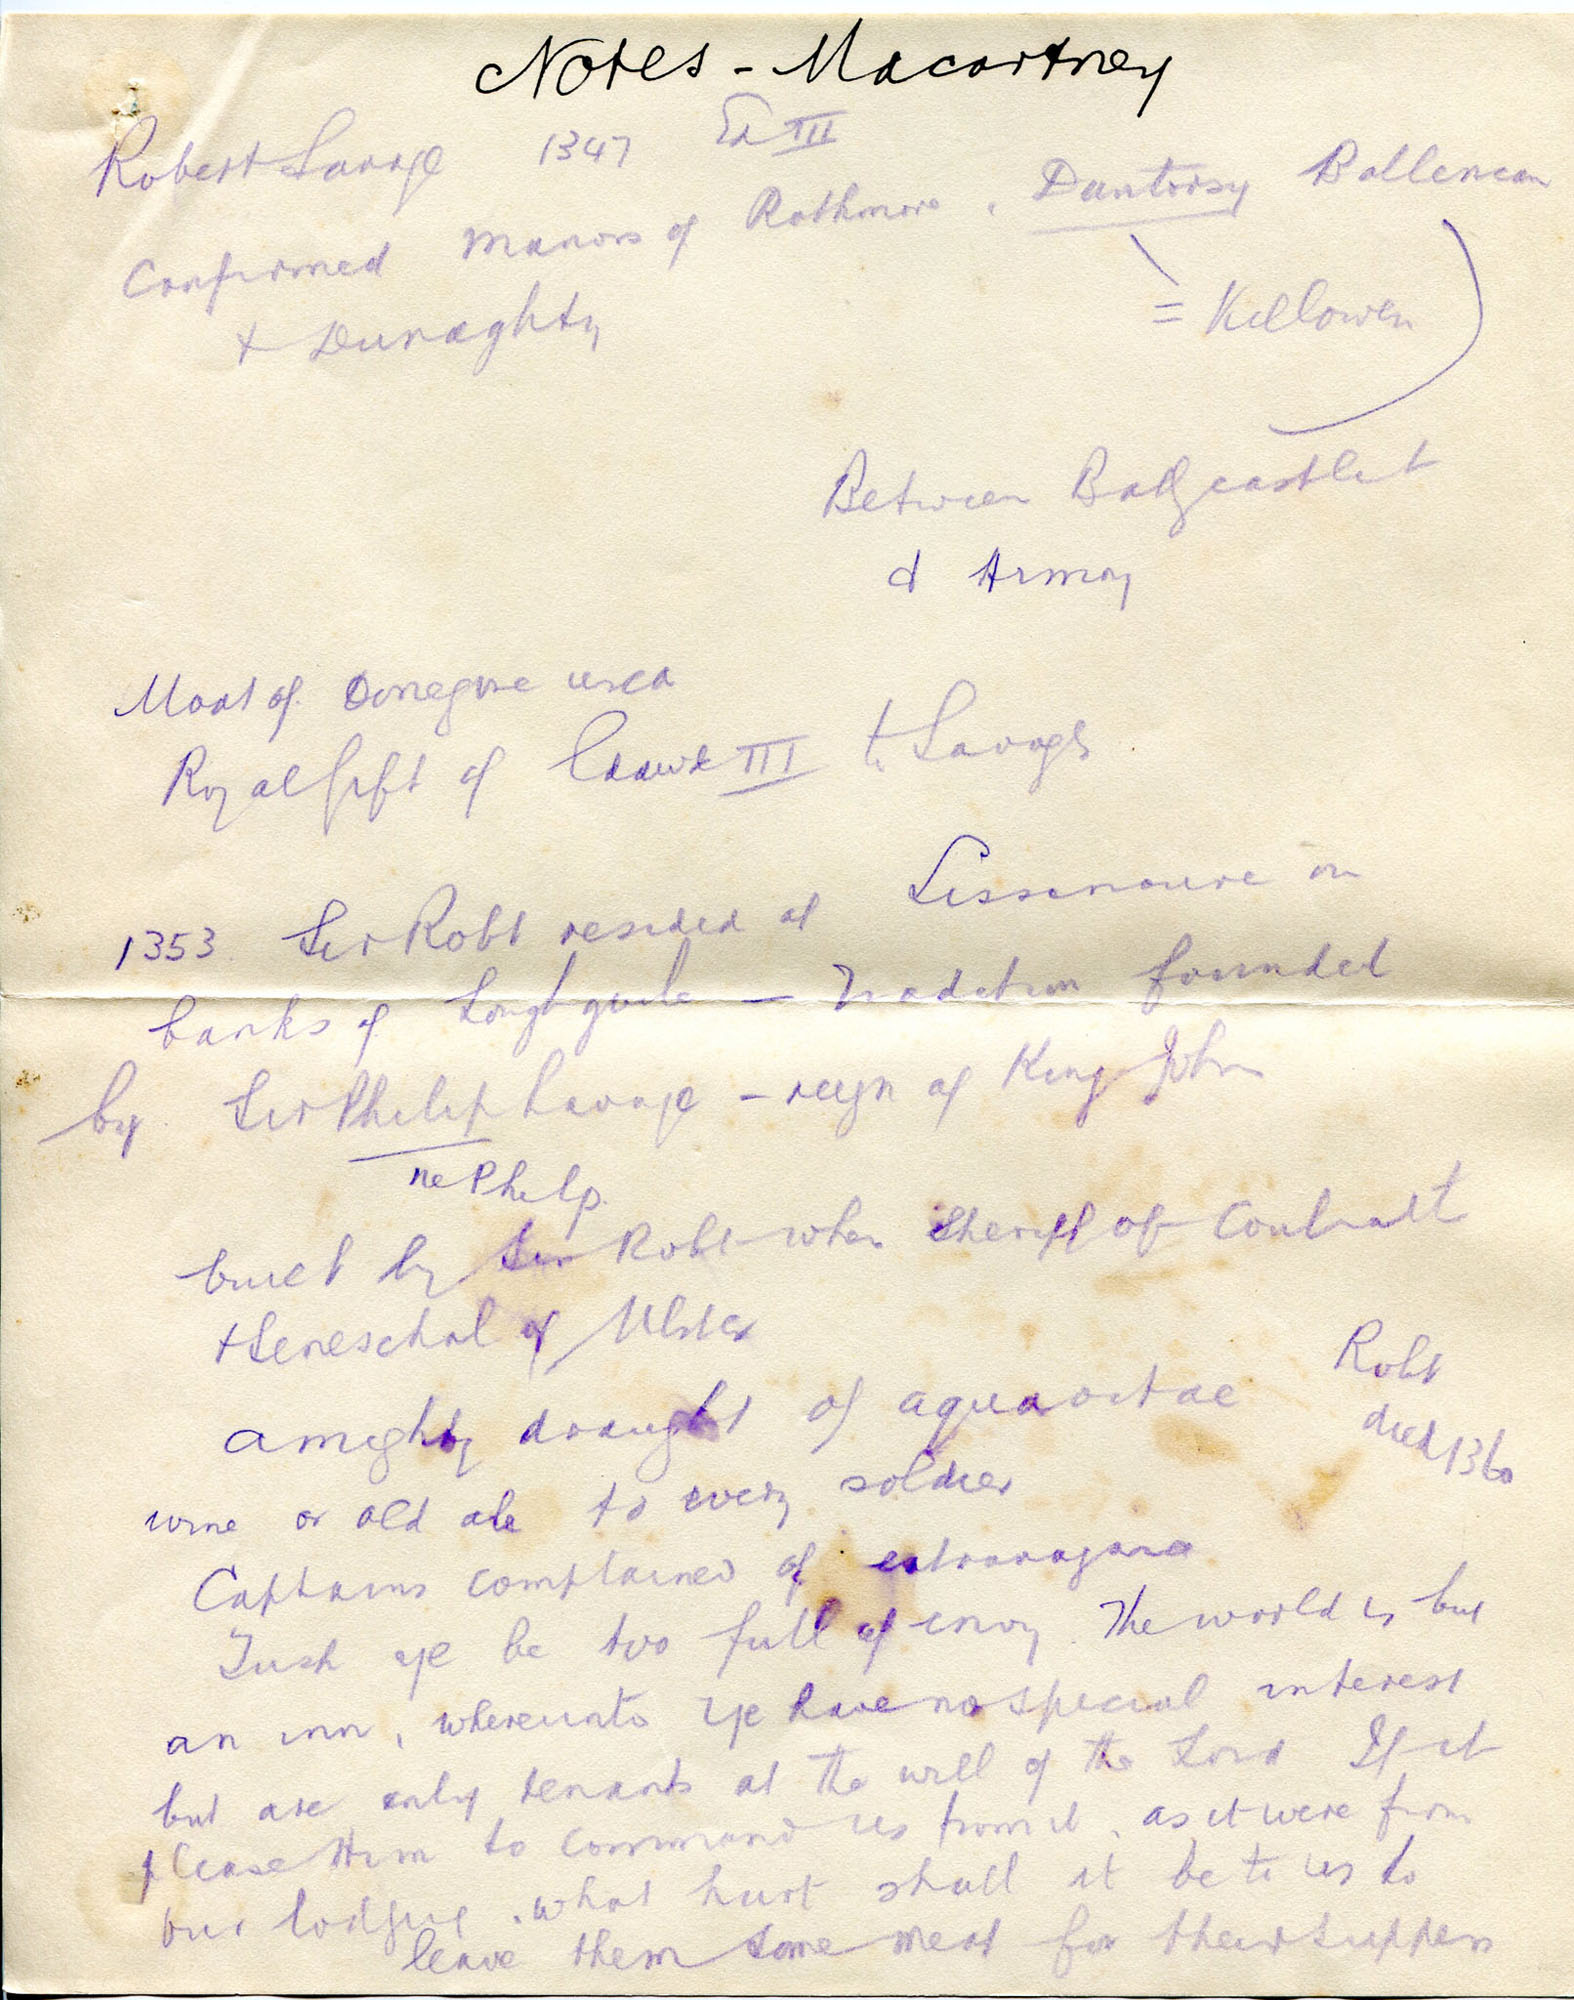 Notes - Macartney
Robert Savage 1347 Ed III
Confirmed Manors of Rathmore, Duntorsy Ballencan
+ Dunaghty
= Killowen
Between Ballycastle
& Armoy
Moat of Donegore used
Royal gift of Edward III to Savages
1353 Sir Robt resided at Lissanoure on
banks of Loughguile — Tradition founded
by Sir Philip Savage - reign of King John
ne Phelp.
built by Sir Robt when Sheriff of
+ Seneschal of Ulster
Robt
died 1360
a mighty draught of aquavitae
wine or old ale to every soldier
Captains complained of extravagance
Tush ye be too full of envy. The world is but
an inn, whereunto ye have no special interest
but are only tenants at the will of the Lord If it
please Him to command us from it, as it were from
our lodging, what hurt shall it be to us to
leave them some meat for their suppers